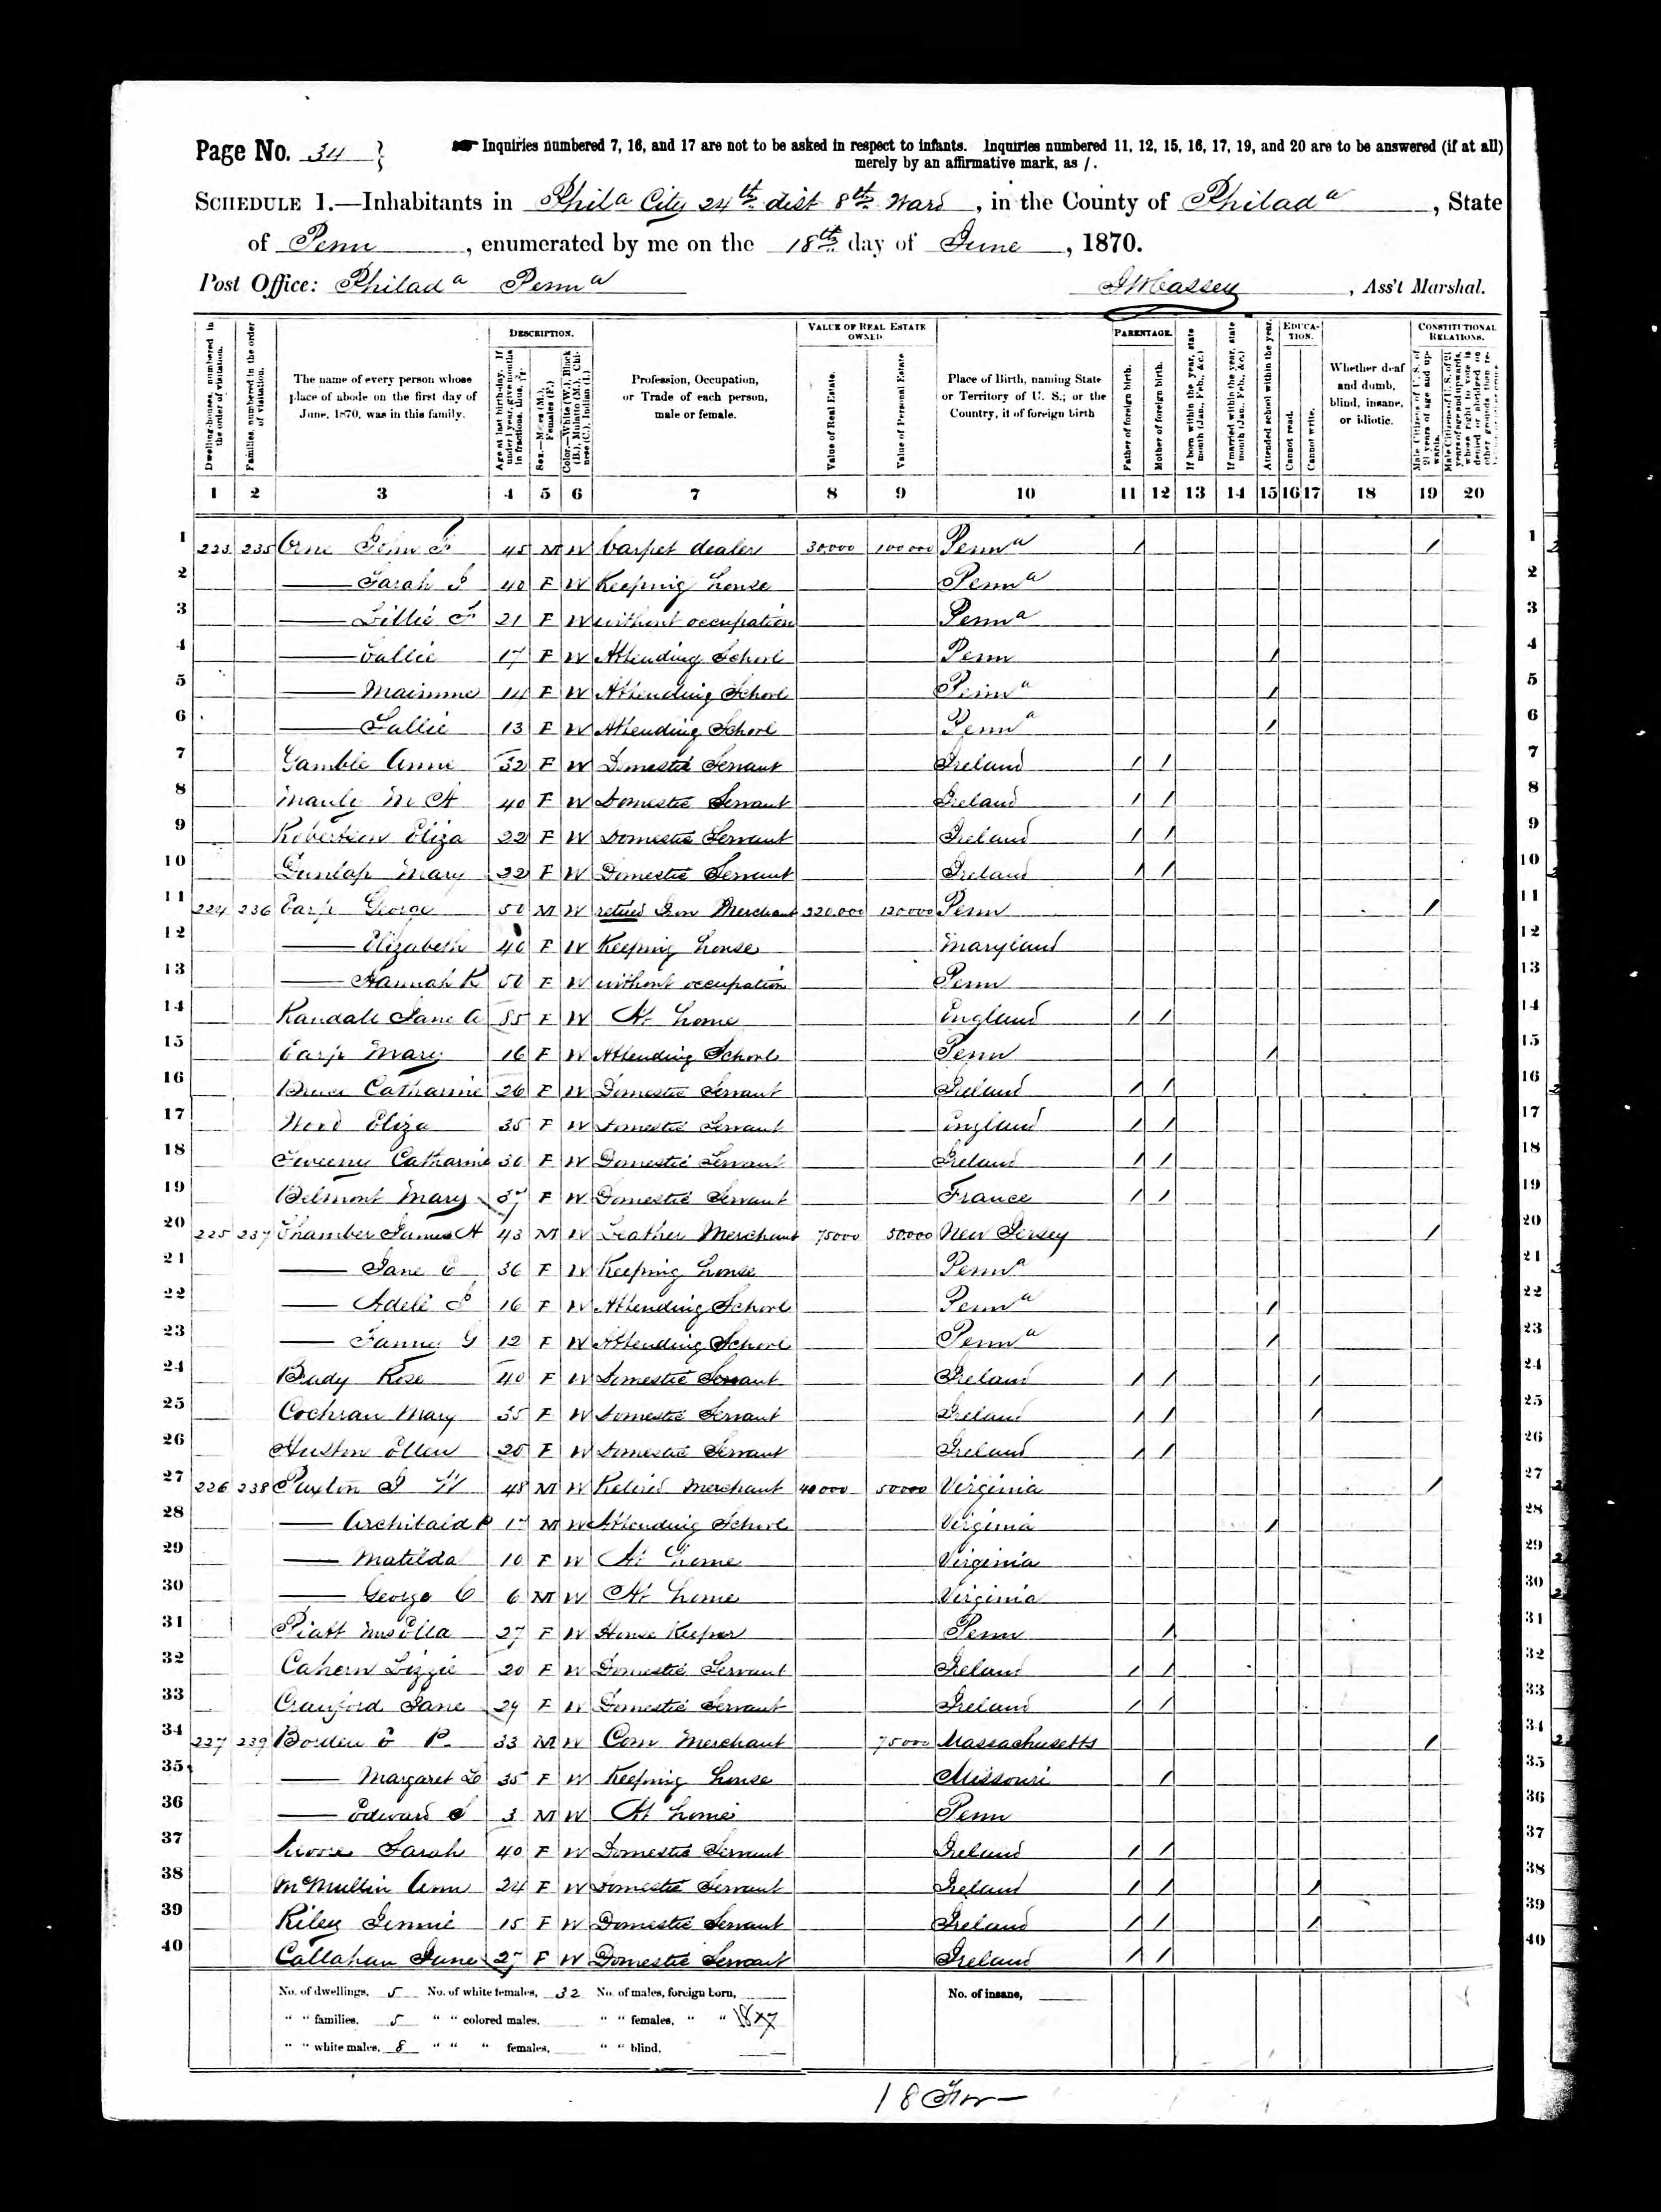 Page No. 34
Inquiries numbered 7, 16, and 17 are not to be asked in respect to infants. Inquiries numbered 11, 12, 15, 16, 17, 19, and 20 are to be answered (if at all)
merely by an affirmative mark, as /.
SCHEDULE 1.—Inhabitants in Phila City 24th dist 8th Ward, in the County of Philada, State
of Penn, enumerated by me on the 18th day of June, 1870.
Post Office: Philada Penna Ass't Marshal.
DESCRIPTION. VALUE OF REAL ESTATE OWNED. PARENTAGE. EDUCATION. CONSTITUTIONAL RELATIONS.
Dwelling-houses, numbered in the order of visitation.
Families, numbered in the order of visitation.
The name of every person whose place of abode on the first day of June, 1870, was in this family.
Age at last birthday. If under 1 year, give months in fractions, thus,
Sex.—Males (M.), Females (F.)
Color.—White (W.), Black (B.), Mulatto (M.), Chinese (C.), Indian (I.)
Profession, Occupation, or Trade of each person, male or female.
Value of Real Estate.
Value of Personal Estate.
Place of Birth, naming State or Territory of U. S.; or the Country, if of foreign birth
Father of foreign birth.
Mother of foreign birth.
If born within the year, state month (Jan., Feb., &c.)
If married within the year, state month (Jan., Feb., &c.)
Attended school within the year.
Cannot read.
Cannot write.
Whether deaf and dumb, blind, insane, or idiotic.
Male Citizens of U. S. of 21 years of age and upwards.
Male Citizens of U. S. of 21 years of age and upwards, whose right to vote is denied or abridged on other grounds than
1 2 3 4 5 6 7 8 9 10 11 12 13 14 15 16 17 18 19 20
1 223 235 Orne John F 45 M W Carpet dealer 30000 100000 Penna / / 1
2 — Sarah 40 F W Keeping house Penna 2
3 — Lillie F 21 F W without occupation Penna 3
4 — Callie 17 F W Attending School Penn / 4
5 — Maimme 14 F W Attending School Penna / 5
6 — Sallie 13 F W Attending School Penna / 6
7 Gamble Anne 32 F W Domestic Servant Ireland / / 7
8 40 F W Domestic Servant Ireland / / 8
9 Robertson Eliza 22 F W Domestic Servant Ireland / / 9
10 Dunlap Mary 22 F W Domestic Servant Ireland / / 10
11 224 236 Earp George 50 M W retired Iron Merchant 220.000 120000 Penn / 11
12 — Elizabeth 40 F W Keeping house Maryland 12
13 — Hannah K 50 F W without occupation Penn 13
14 Randall Jane A 85 F W At home England / / 14
15 Earp Mary 16 F W Attending School Penn / 15
16 Catharine 26 F W Domestic Servant Ireland / / 16
17 Eliza 35 F W Domestic Servant England / / 17
18 Sweeny Catharine 30 F W Domestic Servant Ireland / / 18
19 Belmont Mary 37 F W Domestic Servant France / / 19
20 225 237 Chamber James A 43 M W Leather Merchant 75000 50000 New Jersey / 20
21 — Jane C 36 F W Keeping house Penna 21
22 — Adele 16 F W Attending School Penna / 22
23 — Fanny G 12 F W Attending School Penna / 23
24 Brady Rose 40 F W Domestic Servant Ireland / / / 24
25 Cochran Mary 35 F W Domestic Servant Ireland / / / 25
26 Huston Ellen 20 F W Domestic Servant Ireland / / 26
27 226 238 Paxton J W 48 M W Retired Merchant 40000 50000 Virginia / 27
28 — Archibald P 17 M W Attending School Virginia / 28
29 — Matilda 10 F W At home Virginia 29
30 — George C 6 M W At home Virginia 30
31 Piatt Mrs Ella 27 F W House Keeper Penn / 31
32 Cahern Lizzie 20 F W Domestic Servant Ireland / / 32
33 Crawford Jane 29 F W Domestic Servant Ireland / / 33
34 227 239 Borden E P. 33 M W Com Merchant 75000 Massachusetts / 34
35 — Margaret L 35 F W Keeping house Missouri / 35
36 — Edward S 3 M W At home Penn 36
37 Moore Sarah 40 F W Domestic Servant Ireland / / 37
38 McMullin Ann 24 F W Domestic Servant Ireland / / / 38
39 Riley Jennie 15 F W Domestic Servant Ireland / / / 39
40 Callahan Jane 27 F W Domestic Servant Ireland / / 40
No. of dwellings, 5 No. of white females, 32 No. of males, foreign born, No. of insane,
" " families, 5 " " colored males, " " females, " "
" " white males, 8 " " " females, " " blind,